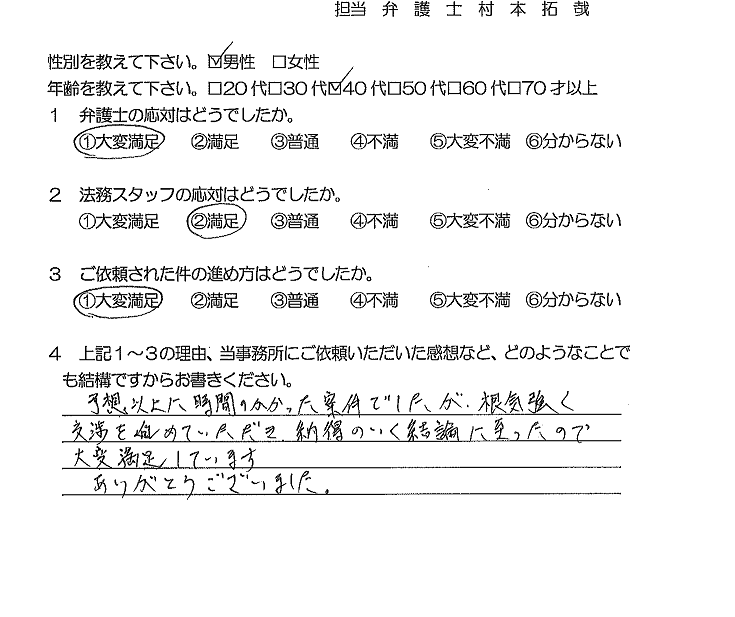 担当 弁 護 士 村 本 拓 哉
性別を教えて下さい。☑男性 □女性
年齢を教えて下さい。□20代□30代☑40代□50代□60代□70才以上
1 弁護士の応対はどうでしたか。
①大変満足 ②満足 ③普通 ④不満 ⑤大変不満 ⑥分からない
2 法務スタッフの応対はどうでしたか。
①大変満足 ②満足 ③普通 ④不満 ⑤大変不満 ⑥分からない
3 ご依頼された件の進め方はどうでしたか。
①大変満足 ②満足 ③普通 ④不満 ⑤大変不満 ⑥分からない
4 上記1~3の理由、当事務所にご依頼いただいた感想など、どのようなことで
も結構ですからお書きください。
予想以上に時間のかかった案件でしたが、根気強く
交渉を進めていただき、納得のいく結論に至ったので
大変満足しています
ありがとうございました。